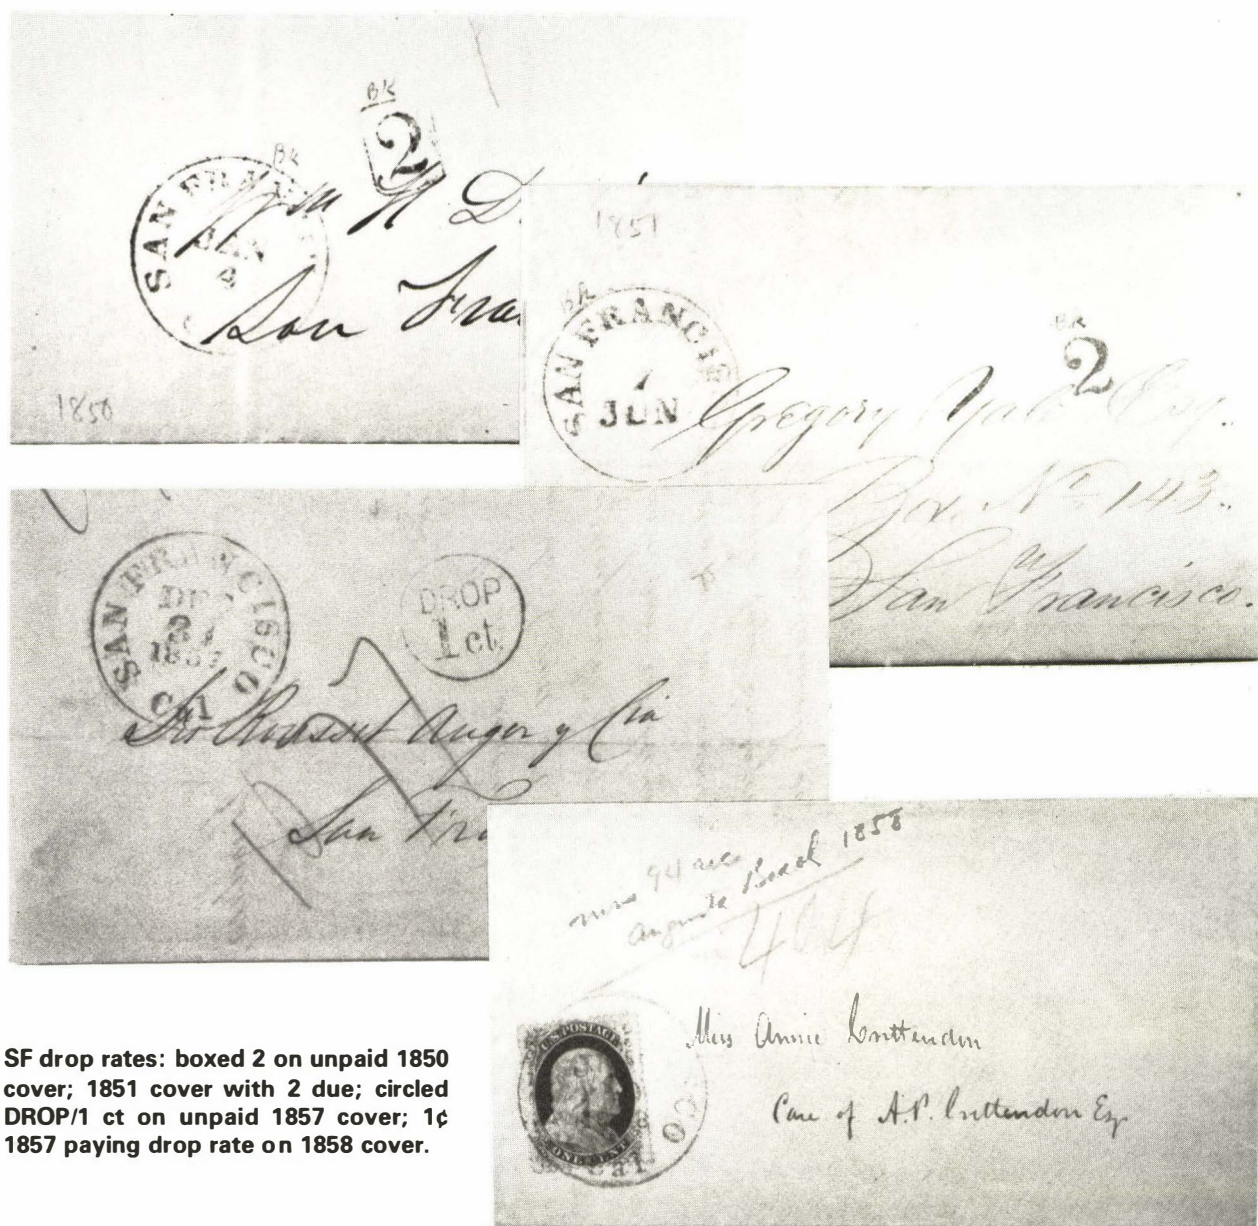 BK
2
BK
SAN FRAN
JAN
Wm H D
San Fra
1850
1851
BK
SAN FRANCIS
1
JUN
BK
2
Gregory Yale Esq.
Box No 143.
San Francisco.
SAN FRANCISCO
DEC
1857
Cal
DROP
1 ct
Auger y Cia
San Fra
94
Augusta 1858
404
U.S. POSTAGE
ONE CENT
CO
Cal
Miss Annie Crittendon
Care of A.P. Crittendon Esq
SF drop rates: boxed 2 on unpaid 1850
cover; 1851 cover with 2 due; circled
DROP/1 ct on unpaid 1857 cover; 1¢
1857 paying drop rate on 1858 cover.